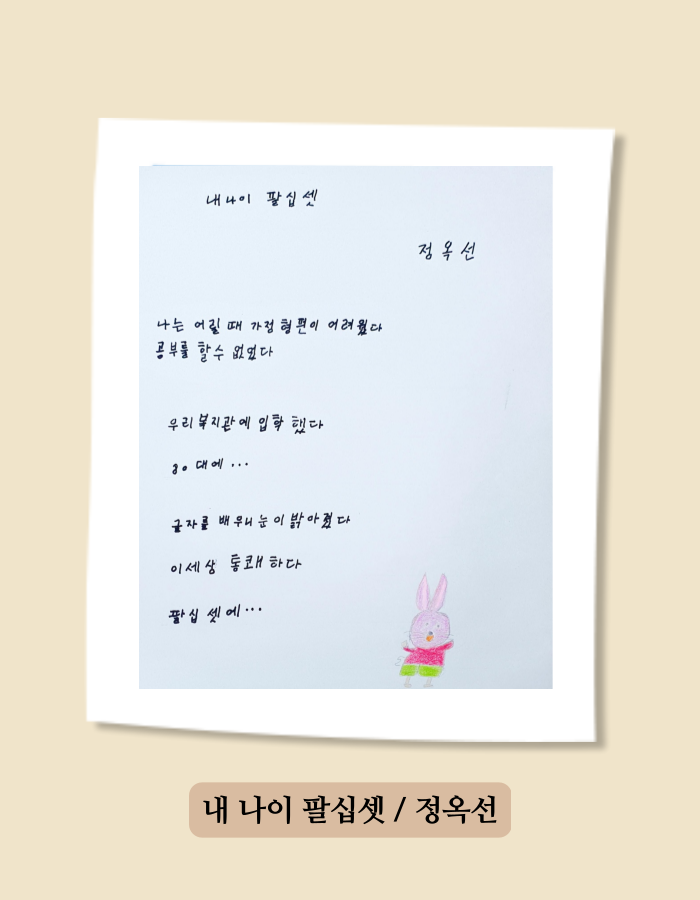 내 나이 팔십셋
정옥선
나는 어릴 때 가정 형편이 어려웠다
공부를 할 수 없었다
우리 복지관에 입학 했다
80 대에...
글자를 배우니 눈이 밝아졌다
이 세상 통쾌하다
팔십 셋에...
내 나이 팔십셋 / 정옥선